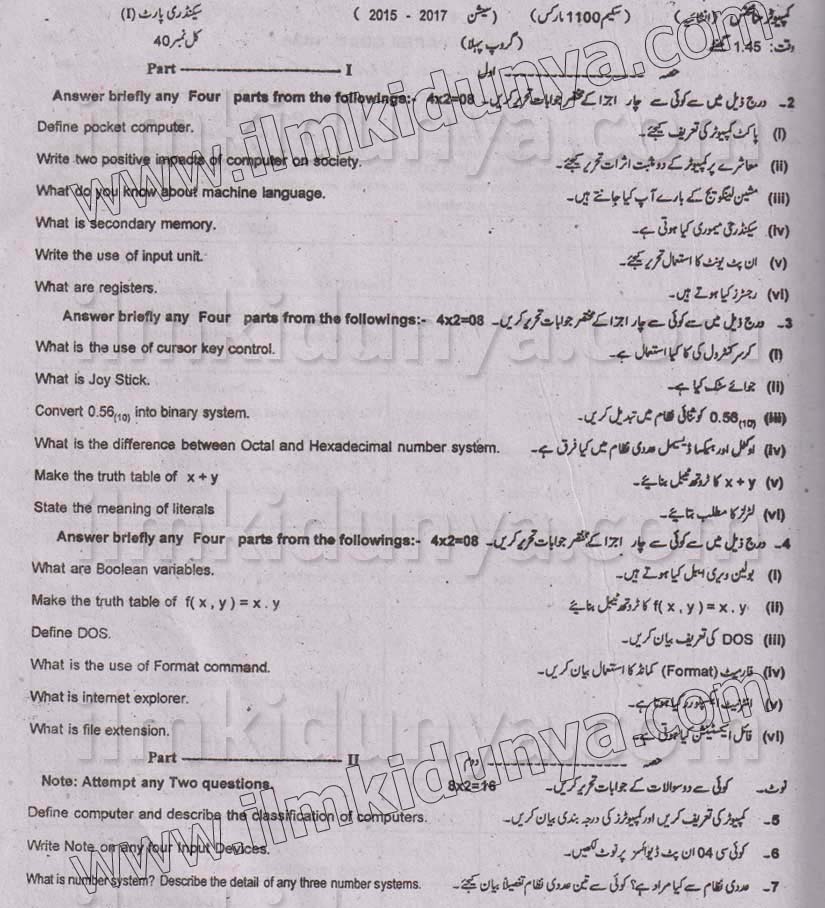 کمپیوٹر سائنس (انشائیہ) (سکیم 1100 مارکس) (سیشن 2015 - 2017) سیکنڈری پارٹ (I)
وقت: 1.45 گھنٹے (گروپ پہلا) کل نمبر 40
Part I حصہ اول
Answer briefly any Four parts from the followings:- 4x2=08 2۔ درج ذیل میں سے کوئی سے چار اجزا کے مختصر جوابات تحریر کریں۔
Define pocket computer. (I) پاکٹ کمپیوٹر کی تعریف کیجئے۔
Write two positive impacts of computer on society. (ii) معاشرے پر کمپیوٹر کے دو مثبت اثرات تحریر کیجئے۔
What do you know about machine language. (iii) مشین لینگویج کے بارے آپ کیا جانتے ہیں۔
What is secondary memory. (iv) سیکنڈری میموری کیا ہوتی ہے۔
Write the use of input unit. (v) ان پٹ یونٹ کا استعمال تحریر کیجئے۔
What are registers. (vi) رجسٹرز کیا ہوتے ہیں۔
Answer briefly any Four parts from the followings:- 4x2=08 3۔ درج ذیل میں سے کوئی سے چار اجزا کے مختصر جوابات تحریر کریں۔
What is the use of cursor key control. (I) کرسر کنٹرول کی کا کیا استعمال ہے۔
What is Joy Stick. (ii) جوائے سٹک کیا ہے۔
Convert 0.56(10) into binary system. (iii) 0.56(10) کو ثنائی نظام میں تبدیل کریں۔
What is the difference between Octal and Hexadecimal number system. (iv) اوکٹل اور ہیکسا ڈیسیمل عددی نظام میں کیا فرق ہے۔
Make the truth table of x + y (v) x + y کا ٹروتھ ٹیبل بنائیے۔
State the meaning of literals (vi) لٹرلز کا مطلب بتائیے۔
Answer briefly any Four parts from the followings:- 4x2=08 4۔ درج ذیل میں سے کوئی سے چار اجزا کے مختصر جوابات تحریر کریں۔
What are Boolean variables. (I) بولین ویری ایبل کیا ہوتے ہیں۔
Make the truth table of f( x , y ) = x . y (ii) f( x , y ) = x . y کا ٹروتھ ٹیبل بنائیے
Define DOS. (iii) DOS کی تعریف بیان کریں۔
What is the use of Format command. (iv) فارمیٹ (Format) کمانڈ کا استعمال بیان کریں۔
What is internet explorer. (v) انٹرنیٹ ایکسپلورر کیا ہوتا ہے۔
What is file extension. (vi) فائل ایکسٹینشن کیا ہوتی ہے۔
Part II حصہ دوم
Note: Attempt any Two questions. 8x2=16 نوٹ۔ کوئی سے دو سوالات کے جوابات تحریر کریں۔
Define computer and describe the classification of computers. 5۔ کمپیوٹر کی تعریف کریں اور کمپیوٹرز کی درجہ بندی بیان کریں۔
Write Note on any four Input Devices. 6۔ کوئی سی 04 ان پٹ ڈیوائسز پر نوٹ لکھیں۔
What is number system? Describe the detail of any three number systems. 7۔ عددی نظام سے کیا مراد ہے؟ کوئی سے تین عددی نظام تفصیلاً بیان کیجئے۔
www.ilmkidunya.com
www.ilmkidunya.com
ilmkidunya.com
ilmkidunya.com
ilmkidunya.com
ilmkidunya.com